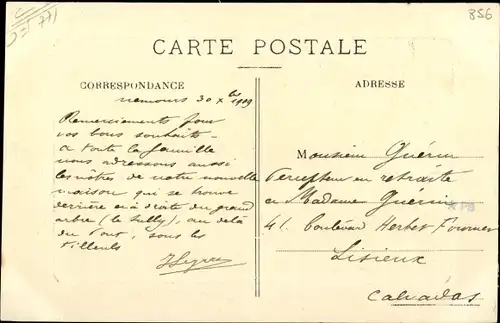 856
CARTE POSTALE
CORRESPONDANCE
ADRESSE
Nemours 30 Xbre 1909
Remerciements pour
vos bons souhaits -
à toute la famille
nous adressons aussi
les nôtres de notre nouvelle
maison qui se trouve
derrière et à droite du grand
arbre (le Sully), au delà
du Pont, sous les
Tilleuls
Monsieur Guérin
Percepteur en retraite
et Madame Guérin
41. Boulevard Herbet Fournet
Lisieux
Calvados